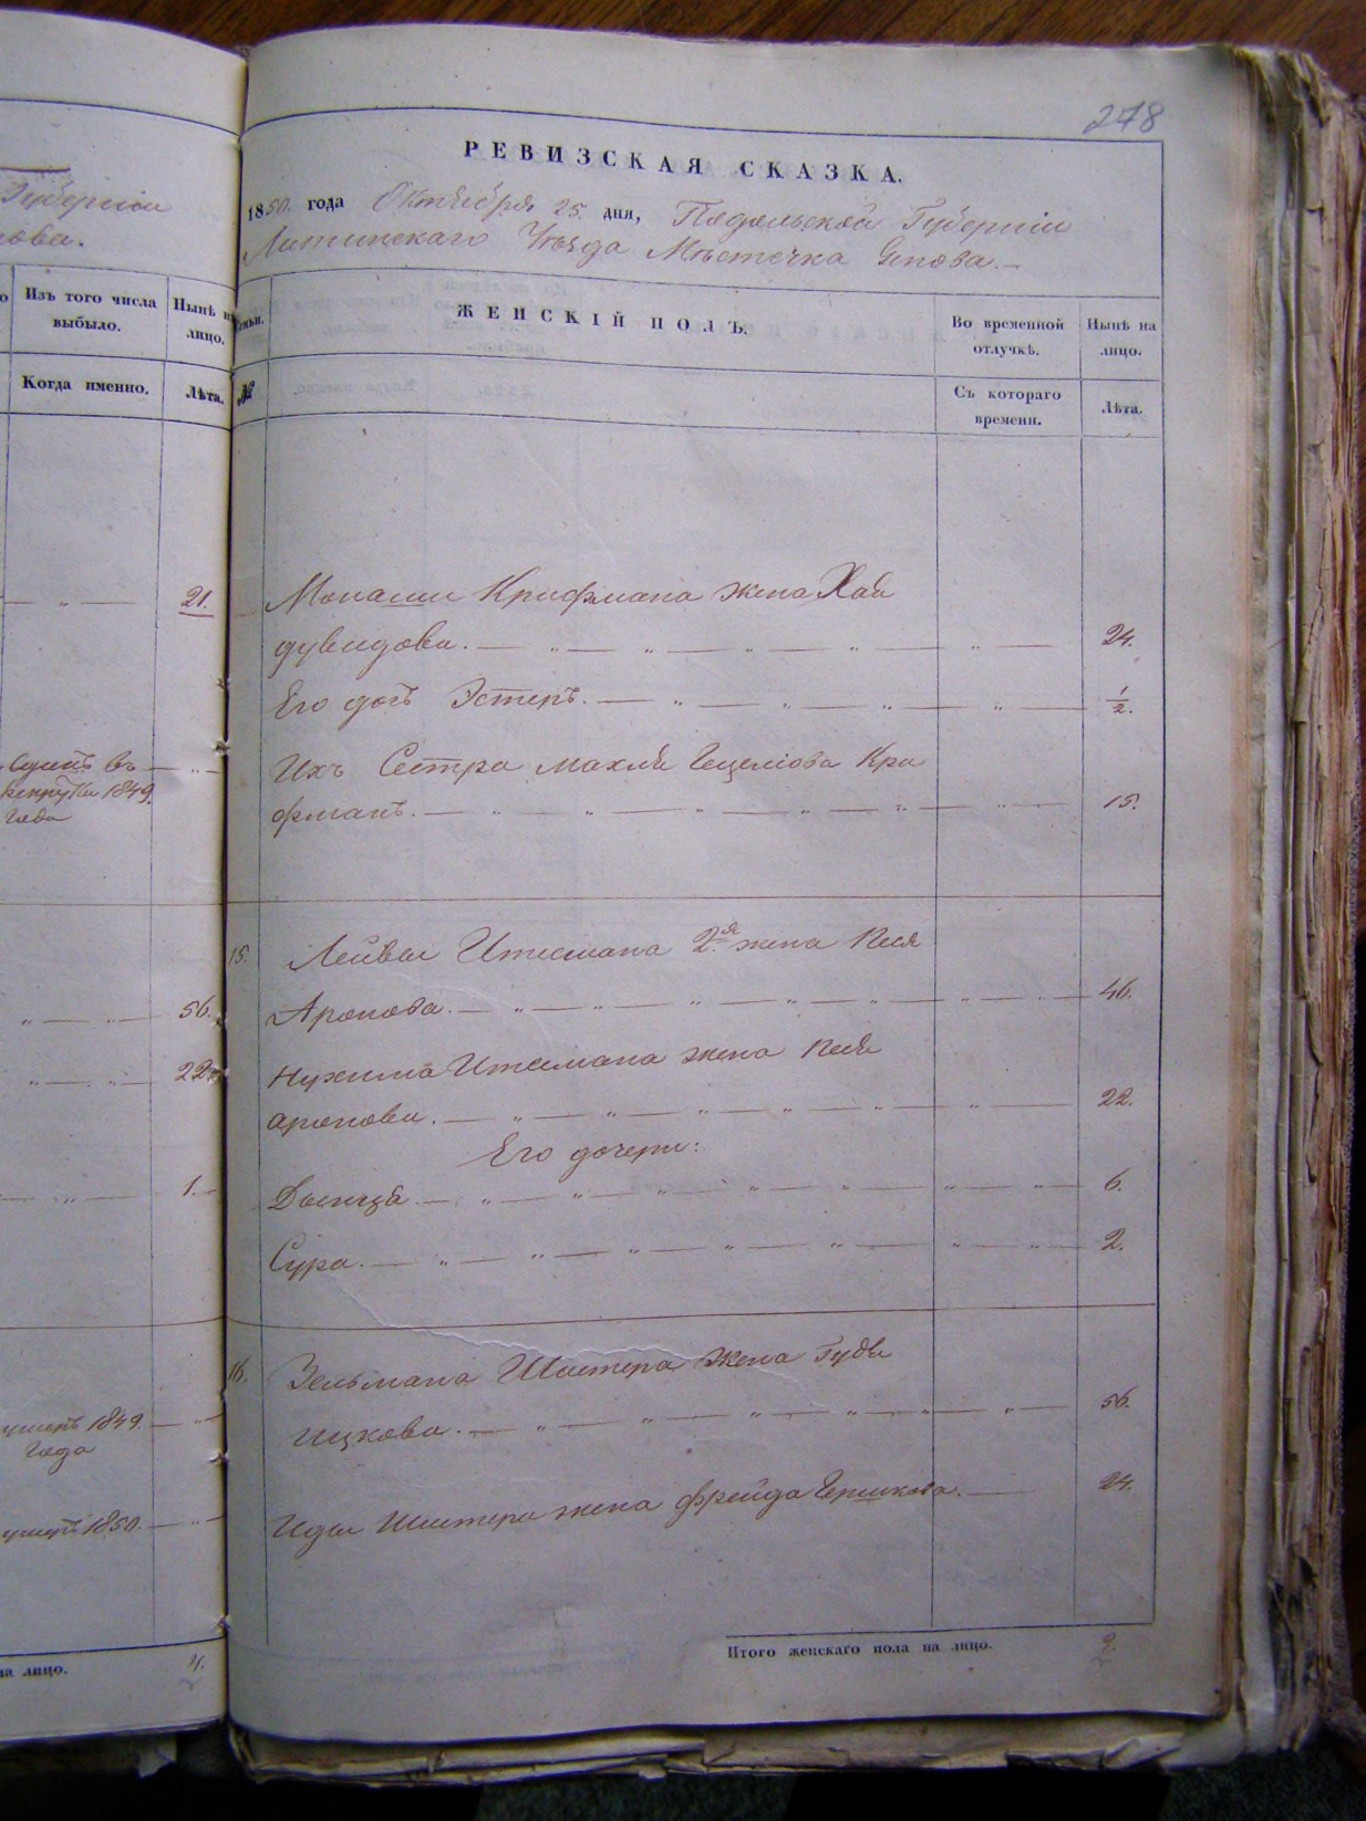 Губерніи
нова.
Изъ того числа выбыло.
Нынѣ на лицо.
Когда именно.
Лѣта.
21.
Сданъ въ
рекруты 1849.
Года
56.
22.
1.
умеръ 1849.
Года
умеръ 1850.
на лицо.
4.
278
РЕВИЗСКАЯ СКАЗКА.
1850. года Октября 25. дня, Подольской Губерніи
Литинскаго Уѣзда Мѣстечка
Семьи.
ЖЕНСКІЙ ПОЛЪ.
Во временной отлучкѣ.
Нынѣ на лицо.
№
Съ котораго времени.
Лѣта.
Монаши Крифмана жена Хая
дувидова. 24.
Его дочь Эстеръ. 1/2.
Ихъ Сестра Махля Гецелiова Кри
фманъ. 15.
15. Лейбы Итесмана 2.я жена Песя
Аронова. 46.
Нухима Итесмана жена Песя
аронова. 22.
Его дочери:
6.
Сура. 2.
16. Зельмана Шистера жена Гудя
Ицкова. 56.
Иды Шистера жена фрейда Гершкова. 24.
Итого женскаго пола на лицо. 9.